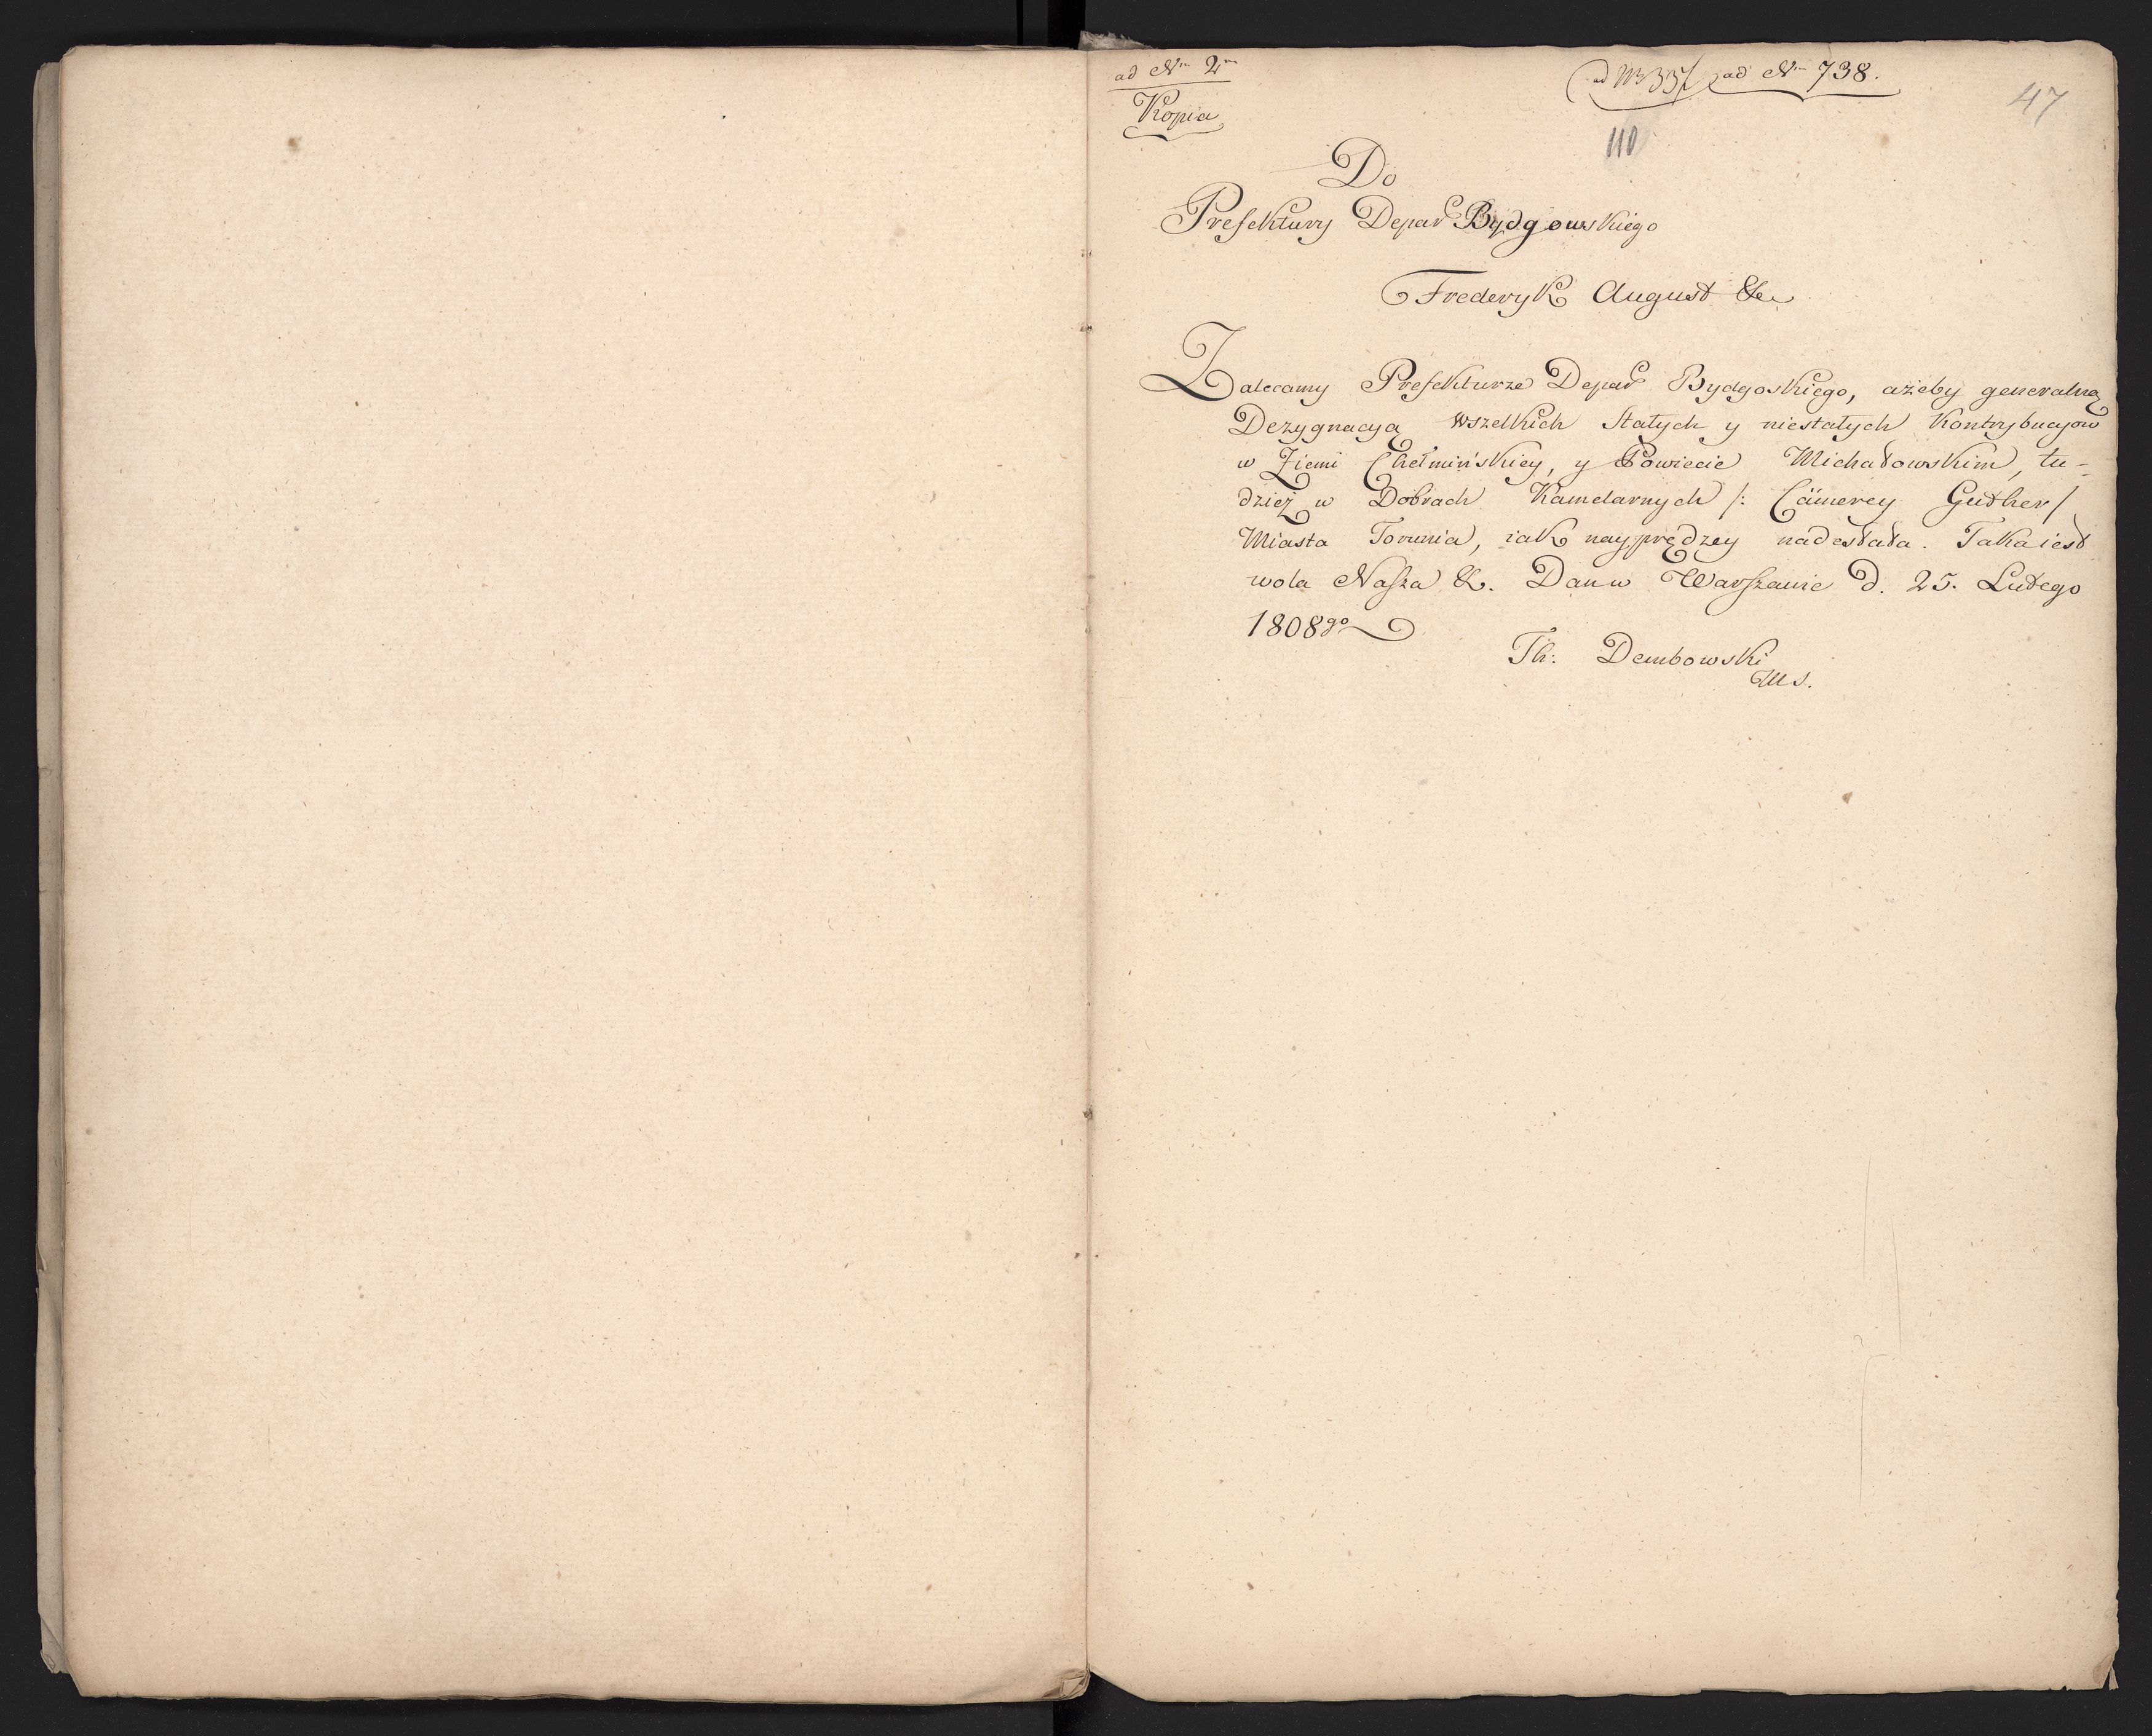 ad Nr 2m
Kopia
ad Nr 738.
47
110
Do
Prefektury Depart Bydgowskiego
Frederyk August &c
Zalecamy Prefekturze Depart Bydgoskiego, ażeby generalną
Dezygnacyą wszelkich stałych y niestałych kontrybucyow
w Ziemi Chełmińskiey, y Powiecie Michałowskim, tu-
dzież w Dobrach Kamelarnych /: Cämerey Guther /
Miasta Torunia, iak nayprędzey nadesłała. Taka iest
wola Nasza &. Dan w Warszawie d. 25. Lutego
1808go
Th: Dembowski
Ms.